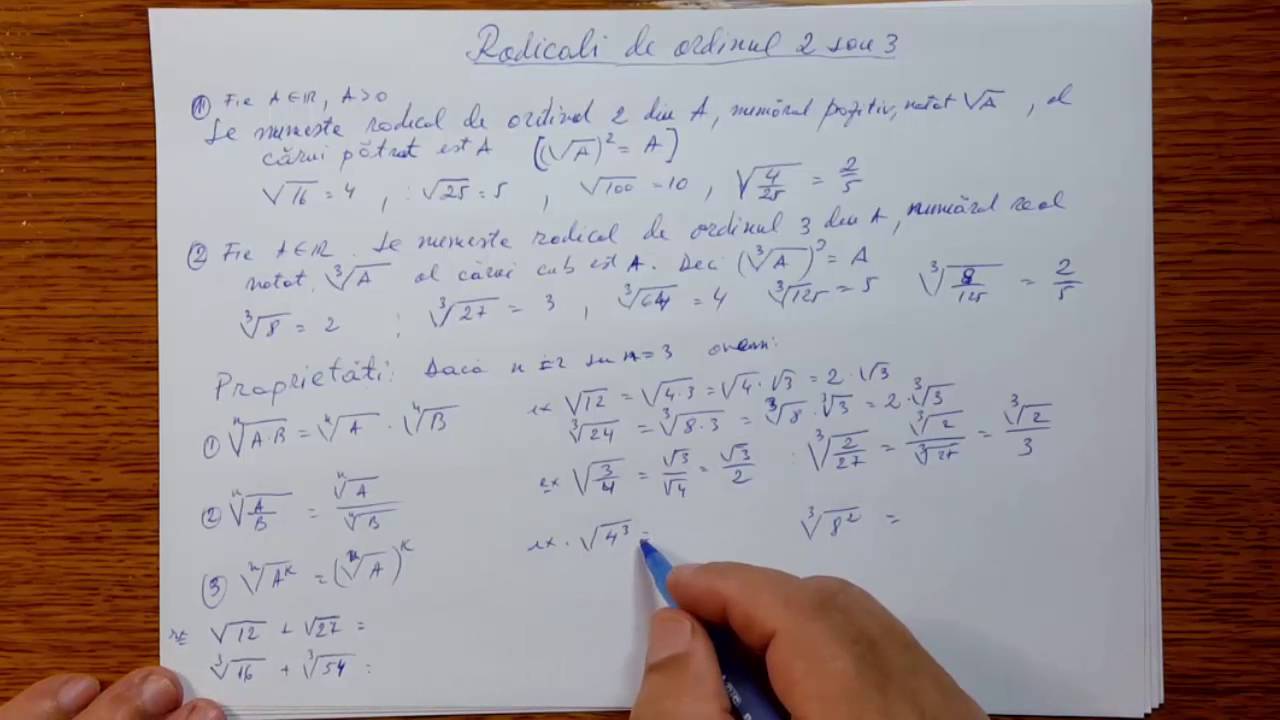 Radicali de ordinul 2 sau 3
① Fie A∈ℝ, A>0
Se numeste radical de ordinul 2 din A, numărul pozitiv, notat √A, al
cărui pătrat est A ((√A)² = A)
√16 = 4, √25 = 5, √100 = 10, √(4/25) = 2/5
② Fie A∈ℝ. Se numeste radical de ordinul 3 din A, numărul real
notat ³√A al cărui cub est A. Deci (³√A)³ = A
³√8 = 2; ³√27 = 3, ³√64 = 4 ³√125 = 5 ³√(8/125) = 2/5
Proprietăti: Dacă n=2 sau n=3 avem:
① ⁿ√(A·B) = ⁿ√A · ⁿ√B ex √12 = √(4·3) = √4·√3 = 2·√3
³√24 = ³√(8·3) = ³√8·³√3 = 2·³√3
② ⁿ√(A/B) = ⁿ√A/ⁿ√B ex √(3/4) = √3/√4 = √3/2 ³√(2/27) = ³√2/³√27 = ³√2/3
③ ⁿ√(Aᵏ) = (ⁿ√A)ᵏ ex. √(4³) = ³√(8²) =
√12 + √27 =
³√16 + ³√54 =